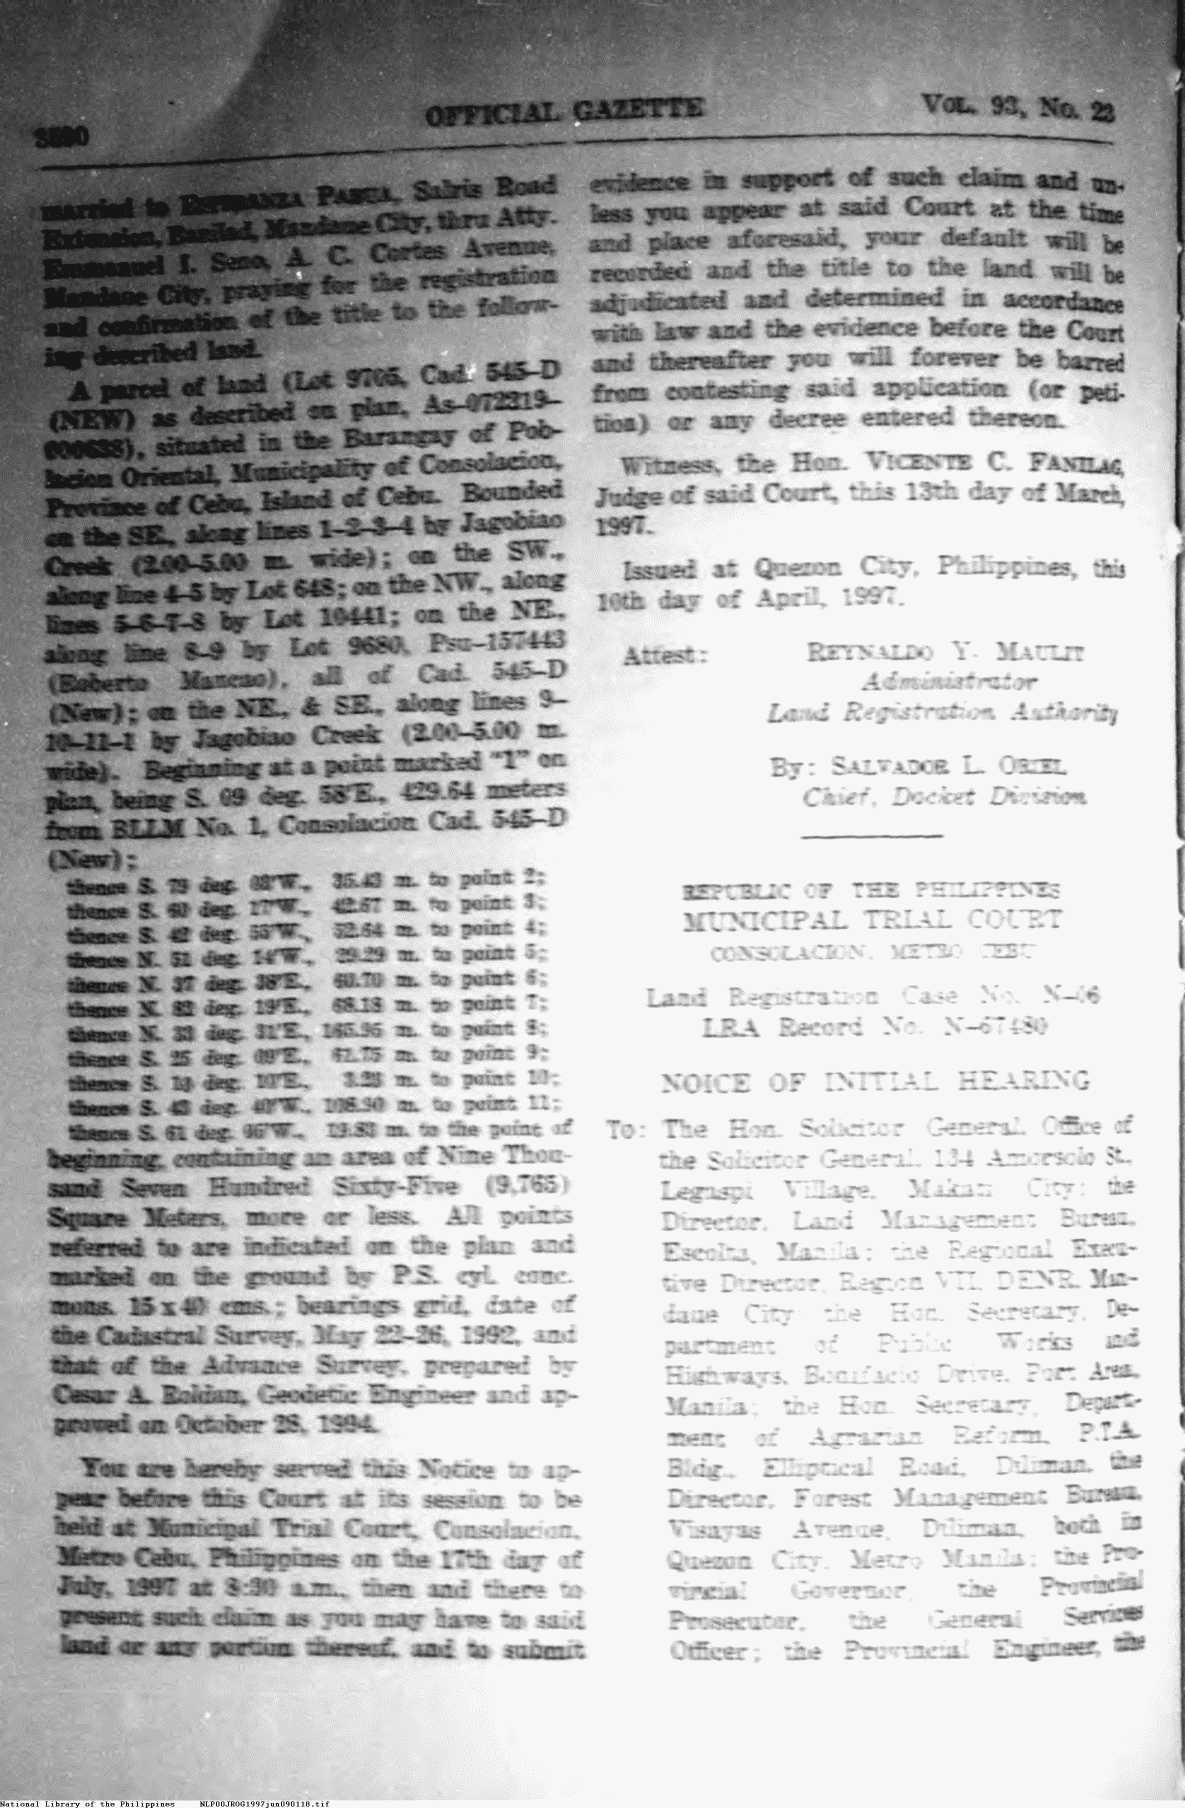 OFFICIAL GAZETTE
VOL. 93, No. 23
married to ESPERANZA PABUA, Sairis Road
Extension, Banilad, Mandaue City, thru Atty.
Emmanuel I. Seno, A. C. Cortes Avenue,
Mandaue City, praying for the registration
and confirmation of the title to the follow-
ing described land.
A parcel of land (Lot 9705, Cad. 545–D
(NEW) as described on plan, As–072319–
000638), situated in the Barangay of Pob-
lacion Oriental, Municipality of Consolacion,
Province of Cebu, Island of Cebu. Bounded
on the SE., along lines 1–2–3–4 by Jagobiao
Creek (2.00–5.00 m. wide); on the SW.,
along line 4–5 by Lot 648; on the NW., along
lines 5–6–7–8 by Lot 10441; on the NE.,
along line 8–9 by Lot 9680, Psu–157443
(Roberto Mancao), all of Cad. 545–D
(New); on the NE., & SE., along lines 9–
10–11–1 by Jagobiao Creek (2.00–5.00 m.
wide). Beginning at a point marked "1" on
plan, being S. 09 deg. 58'E., 429.64 meters
from BLLM No. 1, Consolacion Cad. 545–D
(New);
thence S. 79 deg. 03'W., 35.43 m. to point 2;
thence S. 60 deg. 17'W., 42.67 m. to point 3;
thence S. 42 deg. 55'W., 52.64 m. to point 4;
thence N. 51 deg. 14'W., 29.29 m. to point 5;
thence N. 37 deg. 38'E., 60.70 m. to point 6;
thence N. 32 deg. 19'E., 68.18 m. to point 7;
thence N. 33 deg. 31'E., 165.95 m. to point 8;
thence S. 25 deg. 09'E., 62.75 m. to point 9;
thence S. 13 deg. 10'E., 3.23 m. to point 10;
thence S. 43 deg. 40'W., 108.90 m. to point 11;
thence S. 61 deg. 06'W., 19.83 m. to the point of
beginning, containing an area of Nine Thou-
sand Seven Hundred Sixty-Five (9,765)
Square Meters, more or less. All points
referred to are indicated on the plan and
marked on the ground by P.S. cyl. conc.
mons. 15 x 40 cms.; bearings grid, date of
the Cadastral Survey, May 22–26, 1992, and
that of the Advance Survey, prepared by
Cesar A. Roldan, Geodetic Engineer and ap-
proved on October 28, 1994.
You are hereby served this Notice to ap-
pear before this Court at its session to be
held at Municipal Trial Court, Consolacion,
Metro Cebu, Philippines on the 17th day of
July, 1997 at 8:30 a.m., then and there to
present such claim as you may have to said
land or any portion thereof, and to submit
evidence in support of such claim and un-
less you appear at said Court at the time
and place aforesaid, your default will be
recorded and the title to the land will be
adjudicated and determined in accordance
with law and the evidence before the Court
and thereafter you will forever be barred
from contesting said application (or peti-
tion) or any decree entered thereon.
Witness, the Hon. VICENTE C. FANILAG,
Judge of said Court, this 13th day of March,
1997.
Issued at Quezon City, Philippines, this
10th day of April, 1997.
Attest: REYNALDO Y. MAULIT
Administrator
Land Registration Authority
By: SALVADOR L. ORIEL
Chief, Docket Division
REPUBLIC OF THE PHILIPPINES
MUNICIPAL TRIAL COURT
CONSOLACION, METRO CEBU
Land Registration Case No. N–46
LRA Record No. N–67480
NOICE OF INITIAL HEARING
To: The Hon. Solicitor General, Office of
the Solicitor General, 134 Amorsolo St.,
Legaspi Village, Makati City; the
Director, Land Management Bureau,
Escolta, Manila; the Regional Execu-
tive Director, Region VII, DENR, Man-
daue City the Hon. Secretary, De-
partment of Public Works and
Highways, Bonifacio Drive, Port Area,
Manila; the Hon. Secretary, Depart-
ment of Agrarian Reform, P.T.A.
Bldg., Elliptical Road, Diliman, the
Director, Forest Management Bureau,
Visayas Avenue, Diliman, both in
Quezon City, Metro Manila; the Pro-
vincial Governor, the Provincial
Prosecutor, the General Services
Officer; the Provincial Engineer, the
National Library of the Philippines NLPOOJROG1997jun090118.tif